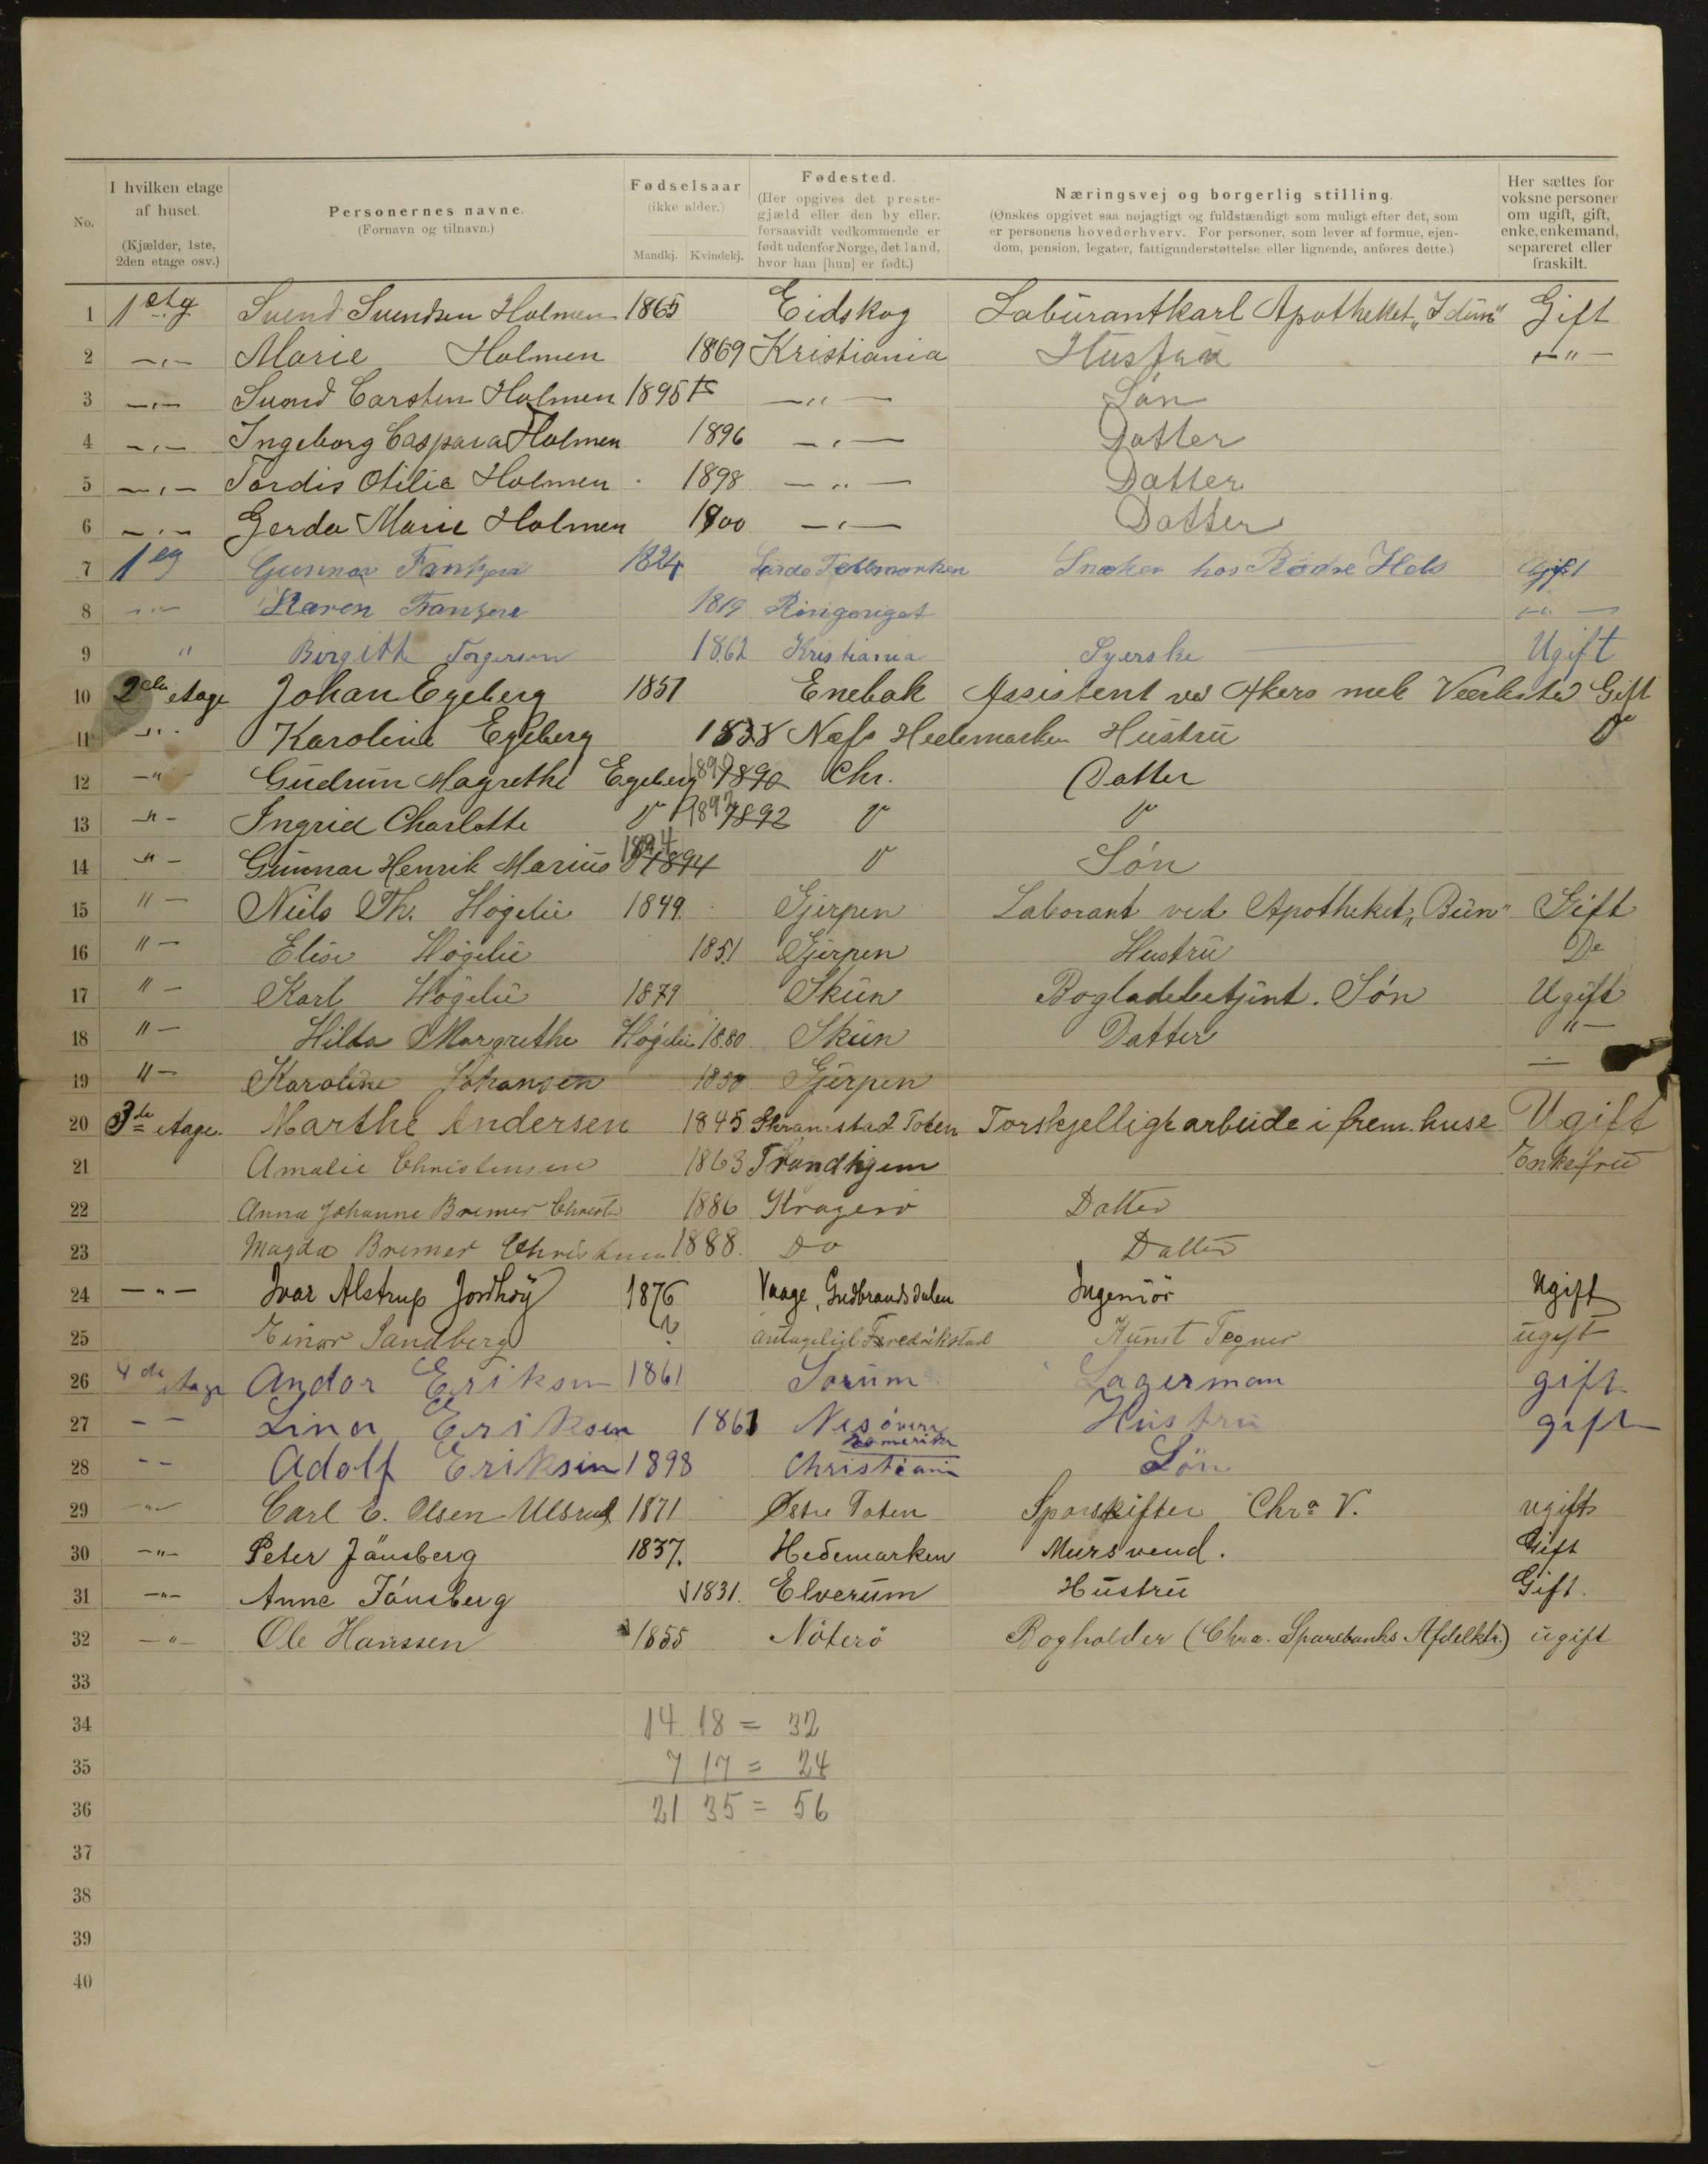 No. I hvilken etage af huset. (Kjælder, 1ste, 2den etage osv.) Personernes navne. (Fornavn og tilnavn.) Fødselsaar (ikke alder.) Mandkj. Kvindekj. Fødested. (Her opgives det prestegjæld eller den by eller, forsaavidt vedkommende er født udenfor Norge, det land, hvor han [hun] er født.) Næringsvej og borgerlig stilling. (Ønskes opgivet saa nøjagtigt og fuldstændigt som muligt efter det, som er personens hovederhverv. For personer, som lever af formue, ejendom, pension, legater, fattigunderstøttelse eller lignende, anføres dette.) Her sættes for voksne personer om ugift, gift, enke, enkemand, separeret eller fraskilt.
1 1 etg Svend Svendsen Holmen 1865 Eidskog Laburantkarl Apotheket „Idun“ Gift
2 —„— Marie Holmen 1869 Kristiania Hustru —„—
3 —„— Svend Carsten Holmen 1895 —„— Søn
4 —„— Ingeborg Caspara Holmen 1896 —„— Datter
5 —„— Tordis Otilie Holmen 1898 —„— Datter
6 —„— Gerda Marie Holmen 1900 —„— Datter
7 1 eg Gunnar 1824 Tellemarken Snæker hos Gift
8 —„— Karen 1819 —„—
9 „ Birgith Torgersen 1862 Kristiania Syerske Ugift
10 2den etage Johan Egeberg 1851 Enebak Assistent ved Akers mek Værksted Gift
11 —„— Karoline Egeberg Næs Hedemarken Hustru Do
12 —„— Gudrun Magrethe Egeberg 1890 1890 Chr. Datter
13 —„— Ingrid Charlotte Do 1892 1892 Do Do
14 —„— Gunnar Henrik Marius Do 1894 1894 Do Søn
15 „— Niels Th. Høgelie 1849 Gjerpen Laborant ved Apotheket Gift
16 „— Elise Høgelie 1851 Gjerpen Hustru Do
17 „— Karl Høgelie 1879 Skien Bogladebetjent. Søn Ugift
18 „— Hilda Margrethe Høgelie 1880 Skien Datter „—
19 „— Karoline Johansen 1850 Gjerpen —
20 3de etage. Marthe Andersen 1845 Toten Forskjelligt arbeide i frem. huse Ugift
21 Amalie Christensen 1863 Trondhjem Enkefru
22 Anna Johanne Bremer Christ 1886 Kragerø Datter
23 Magda Bremer Christensen 1888. Do Datter
24 —„— Ivar Alstrup Jordhøy 1876 Vaage, Gudbrandsdalen Ingeniör Ugift
25 Einar Sandberg ? antageligt Fredrikstad Kunst Tegner ugift
26 4de etage Andor Eriksen 1861 Sørum Lagerman gift
27 — — Lina Eriksen 1861 Nes øvere Romerike Hustru gift
28 — — Adolf Eriksen 1898 Christiania Sön
29 —„— Carl E. Olsen Ulsrud 1871 Østre Toten Sporskifter Chra V. ugift
30 —„— Peter Jönsberg 1837. Hedemarken Mursvend. Gift
31 —„— Anne Jönsberg 1831. Elverum Hustru Gift.
32 —„— Ole Hanssen 1855 Nöterö Bogholder (Chra. Sparebanks Afdelktr.) ugift
33
34 14 18 = 32
35 7 17 = 24
36 21 35 = 56
37
38
39
40